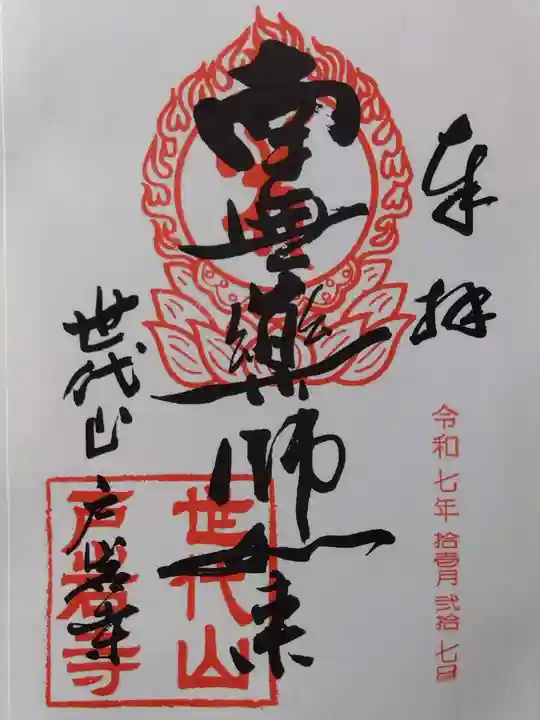 奉拝
令和七年 拾壱月 弐拾七日
薬師如来
世代山
戸岩寺
世代山
戸岩寺